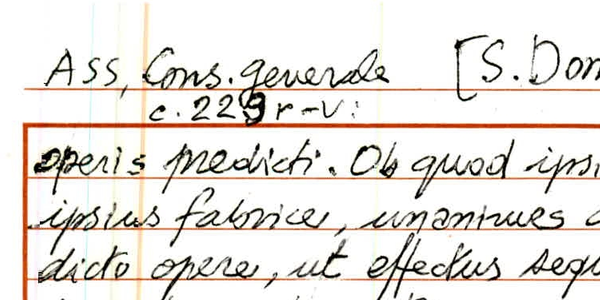 Ass, Cons. generale [S. Dom
c. 229 r-v:
operis predicti. Ob quod ipsi
ipsius fabrice, unanimes
dicto opere, ut effectus sequ